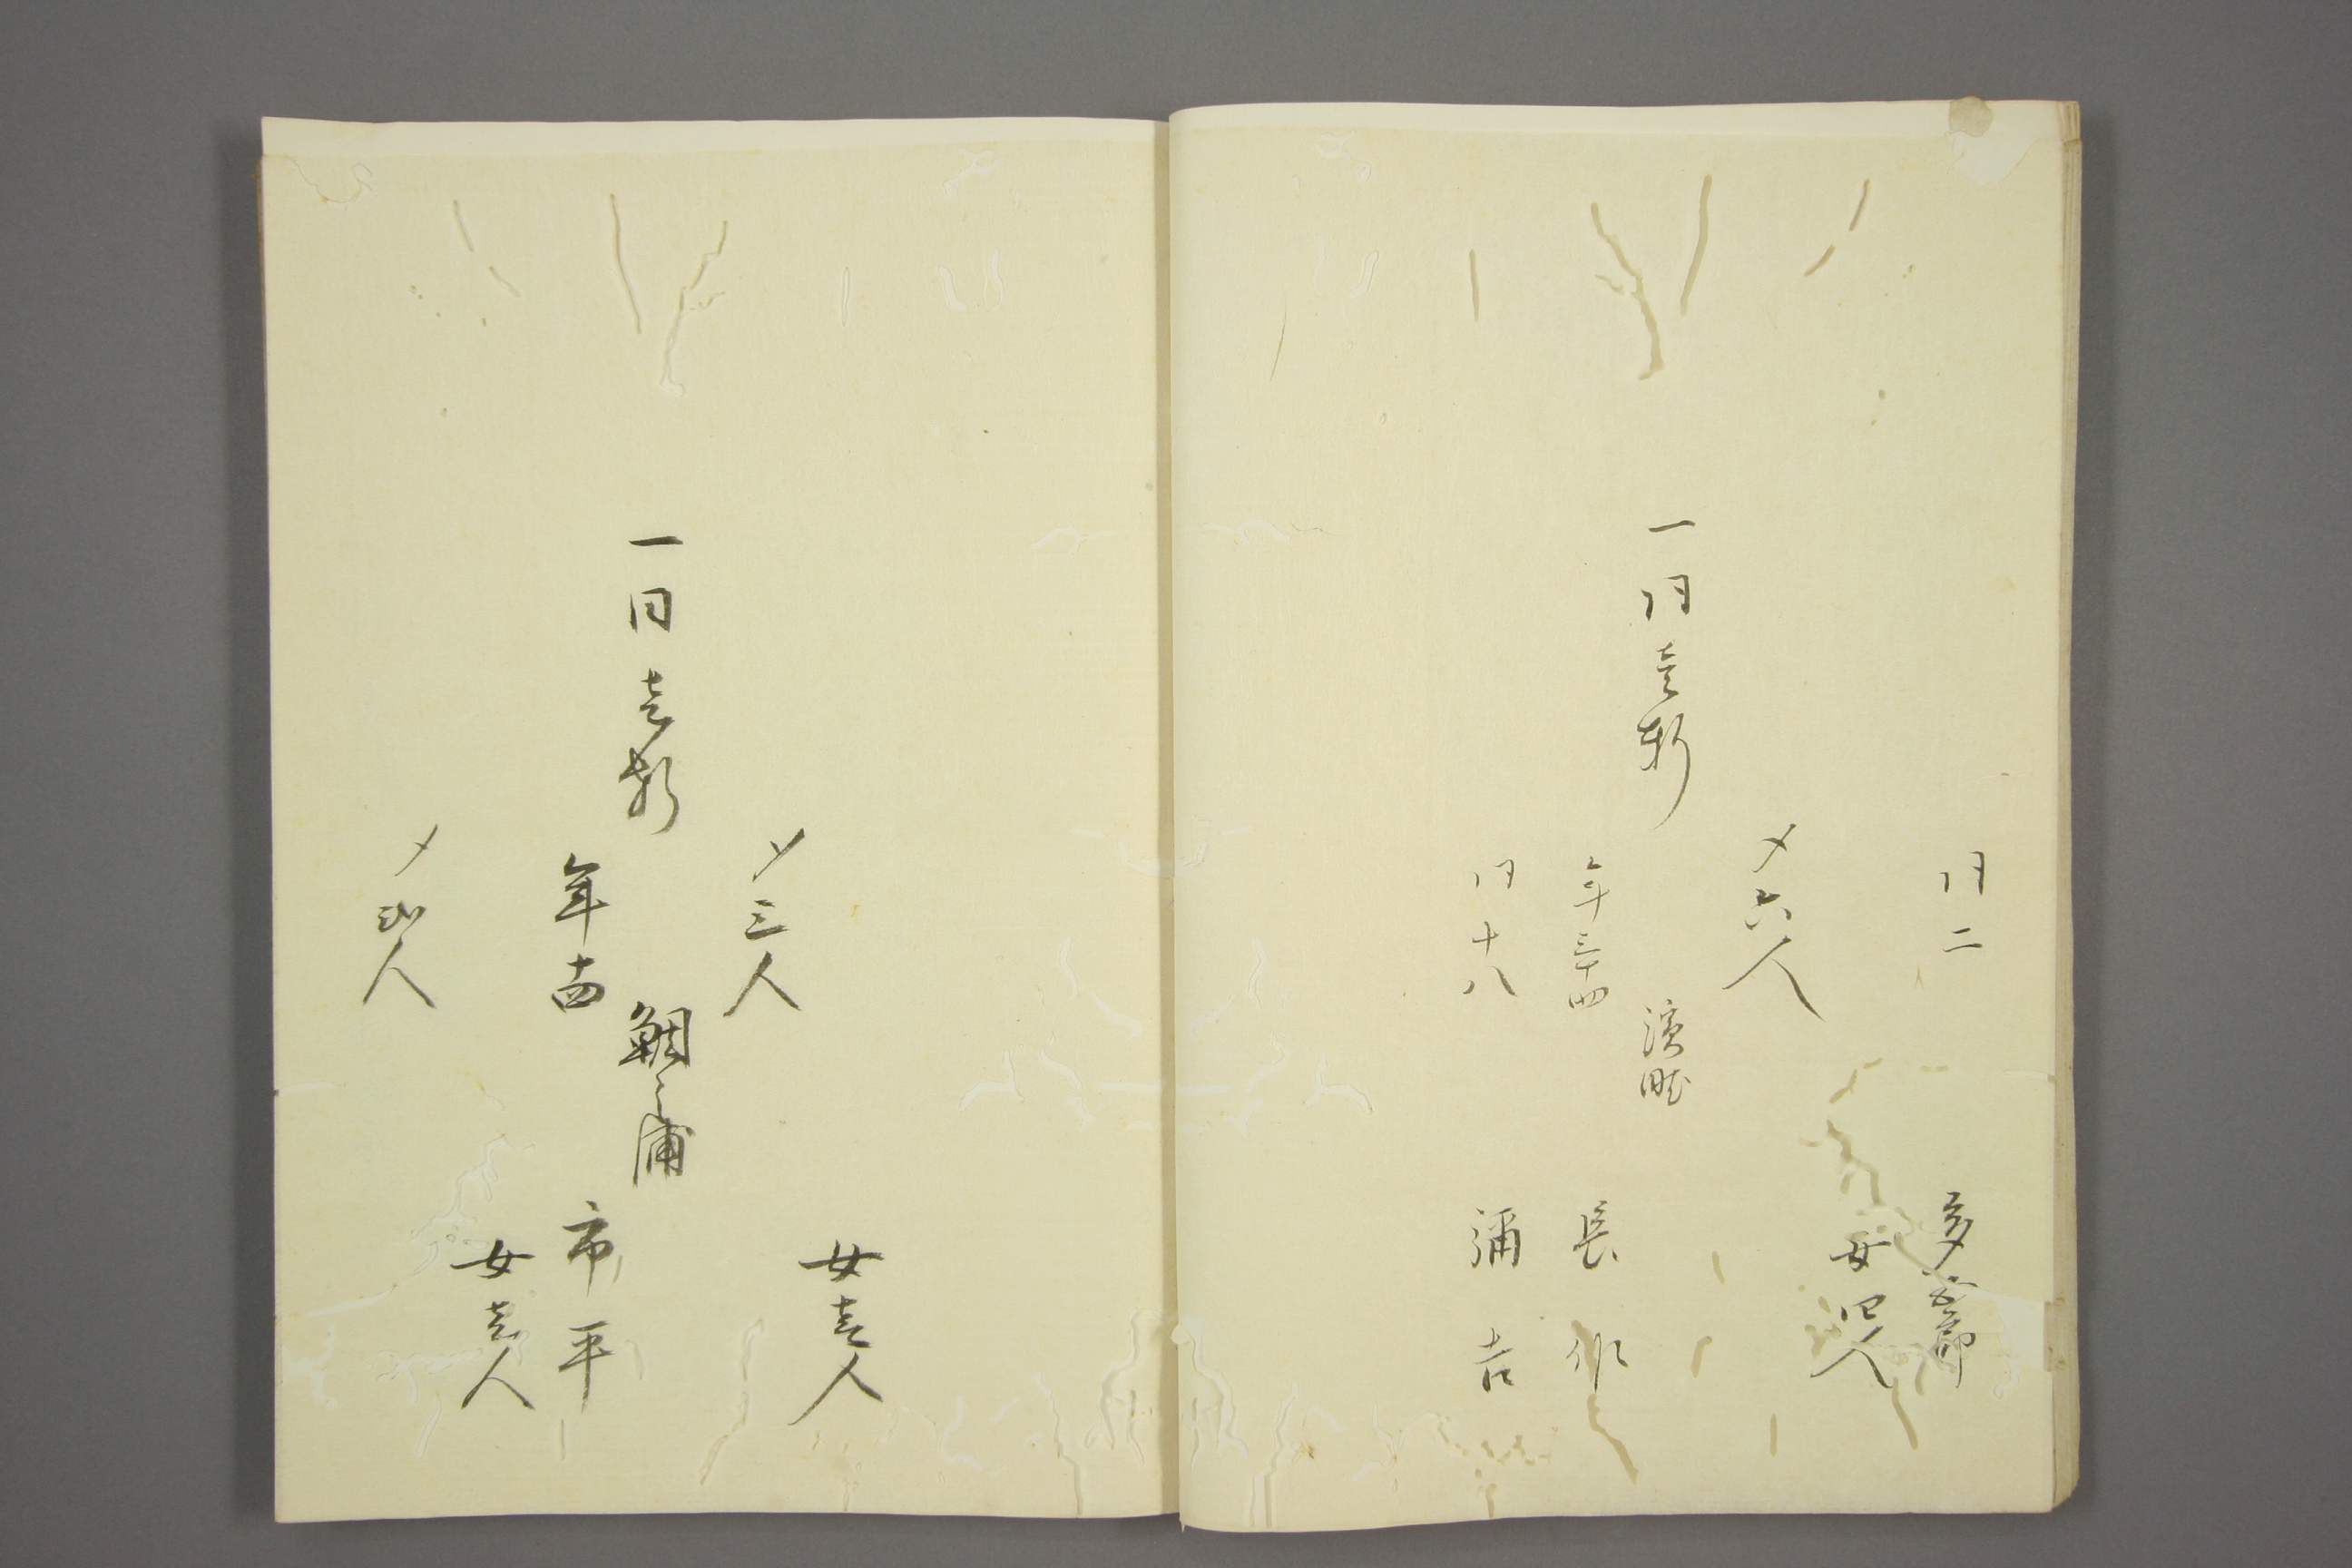 同二　多五郎
女四人
〆六人
一同壱軒　濱畦
年三十四　長作
同十八　彌吉
女壱人
〆三人
一同壱軒　鯛之浦
年十四　市平
女壱人
〆弐人